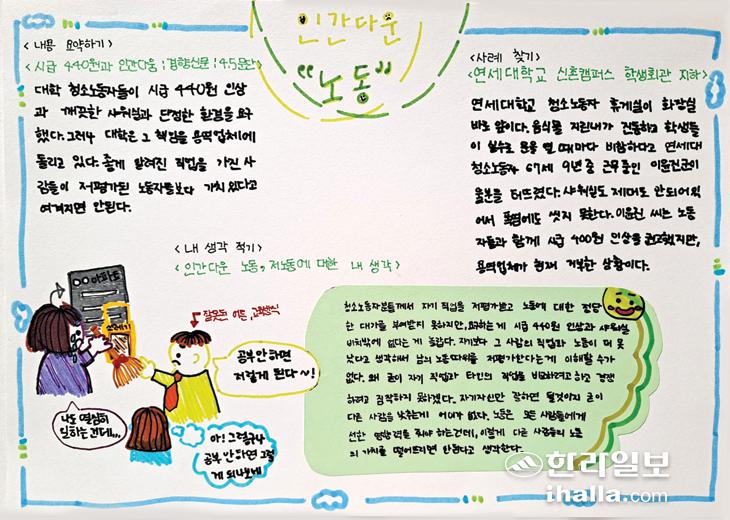 인간다운
"노동"
<내용 요약하기>
<시급 440원과 인간다움 | 경향신문 | 4.5문단>
대학 청소노동자들이 시급 440원 인상
과 깨끗한 샤워실과 단정한 환경을 요구
했다. 그러나 대학은 그 책임을 용역업체에
돌리고 있다. 좋게 알려진 직업을 가진 사
람들이 저평가된 노동자들보다 가치 있다고
여겨지면 안된다.
<사례 찾기>
<연세대학교 신촌캠퍼스 학생회관 지하>
연세대학교 청소노동자 휴게실이 화장실
바로 앞이다. 음식물 지린내가 진동하고 학생들
이 실수로 문을 열 때마다 비참하다고 연세대
청소노동자 67세 9년 중 근무중인 이윤진군이
울분을 터뜨렸다. 샤워실도 제대로 안되어있
어서 폭염에도 씻지 못한다. 이윤진 씨는 노동
자들과 함께 시급 400원 인상을 권고했지만,
용역업체가 현재 거부한 상황이다.
<내 생각 적기>
<인간다운 노동, 저노동에 대한 내 생각>
청소노동자분들께서 자기 직업을 저평가받고 노동에 대한 정당
한 대가를 부여받지 못하지만, 요구하는 게 시급 440원 인상과 샤워실
비치밖에 없다는 게 슬펐다. 자기보다 그 사람의 직업과 노동이 더 못
났다고 생각해서 남의 노동따위를 저평가한다는게 이해할 수가
없다. 왜 굳이 자기 직업과 타인의 직업을 비교하려고하고 경쟁
하려고 짐작하지 못하겠다. 자기자신만 잘하면 될것이지 굳이
다른 사람을 낮추는게 어이가 없다. 노동은 모든 사람들에게
선한 영향력을 줘야 하는건데, 이렇게 다른 사람들의 노동
의 가치를 떨어뜨리면 안된다고 생각한다.
○○아파트
쓰레기
잘못된 어른, 교육방식
공부 안 하면
저렇게 된다~!
나도 열심히
일하는건데...
아! 그렇구나
공부 안 하면 그렇
게 되나보네
한라일보
ihalla.com